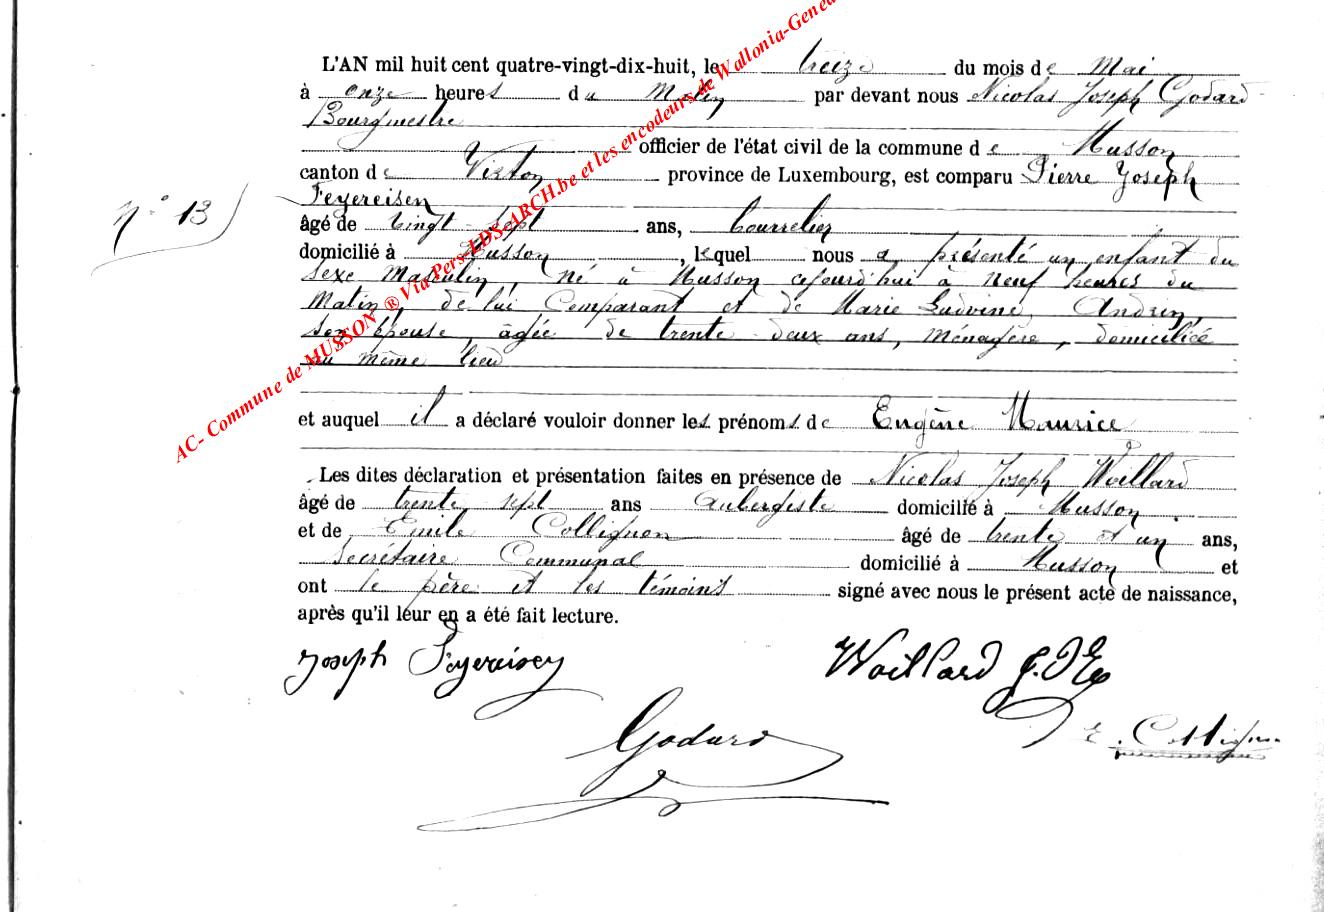 L'AN mil huit cent quatre-vingt-dix-huit, le treize du mois de Mai
à onze heures du Matin par devant nous Nicolas Joseph Godard
Bourgmestre
officier de l'état civil de la commune de Musson
canton de Virton province de Luxembourg, est comparu Pierre Joseph
Feyereisen
n° 13
âgé de vingt sept ans, bourrelier
domicilié à Musson, lequel nous a présenté un enfant du
sexe Masculin, né à Musson cejourd'hui à neuf heures du
Matin, de lui Comparant et de Marie Ludvine Andrin,
son épouse, agée de trente deux ans, Ménagère, domiciliée
au même lieu
et auquel il a déclaré vouloir donner les prénoms de Eugène Maurice
Les dites déclaration et présentation faites en présence de Nicolas Joseph Woillard
âgé de trente sept ans Aubergiste domicilié à Musson
et de Emile Collignon âgé de trente et un ans,
Secrétaire Communal domicilié à Musson et
ont le père et les témoins signé avec nous le présent acte de naissance,
après qu'il leur en a été fait lecture.
Joseph Feyereisen Woillard
Godard E. Collignon
AC- Commune de MUSSON ® Via Pers-LDS-ARCH.be et les encodeurs de Wallonia-Genea